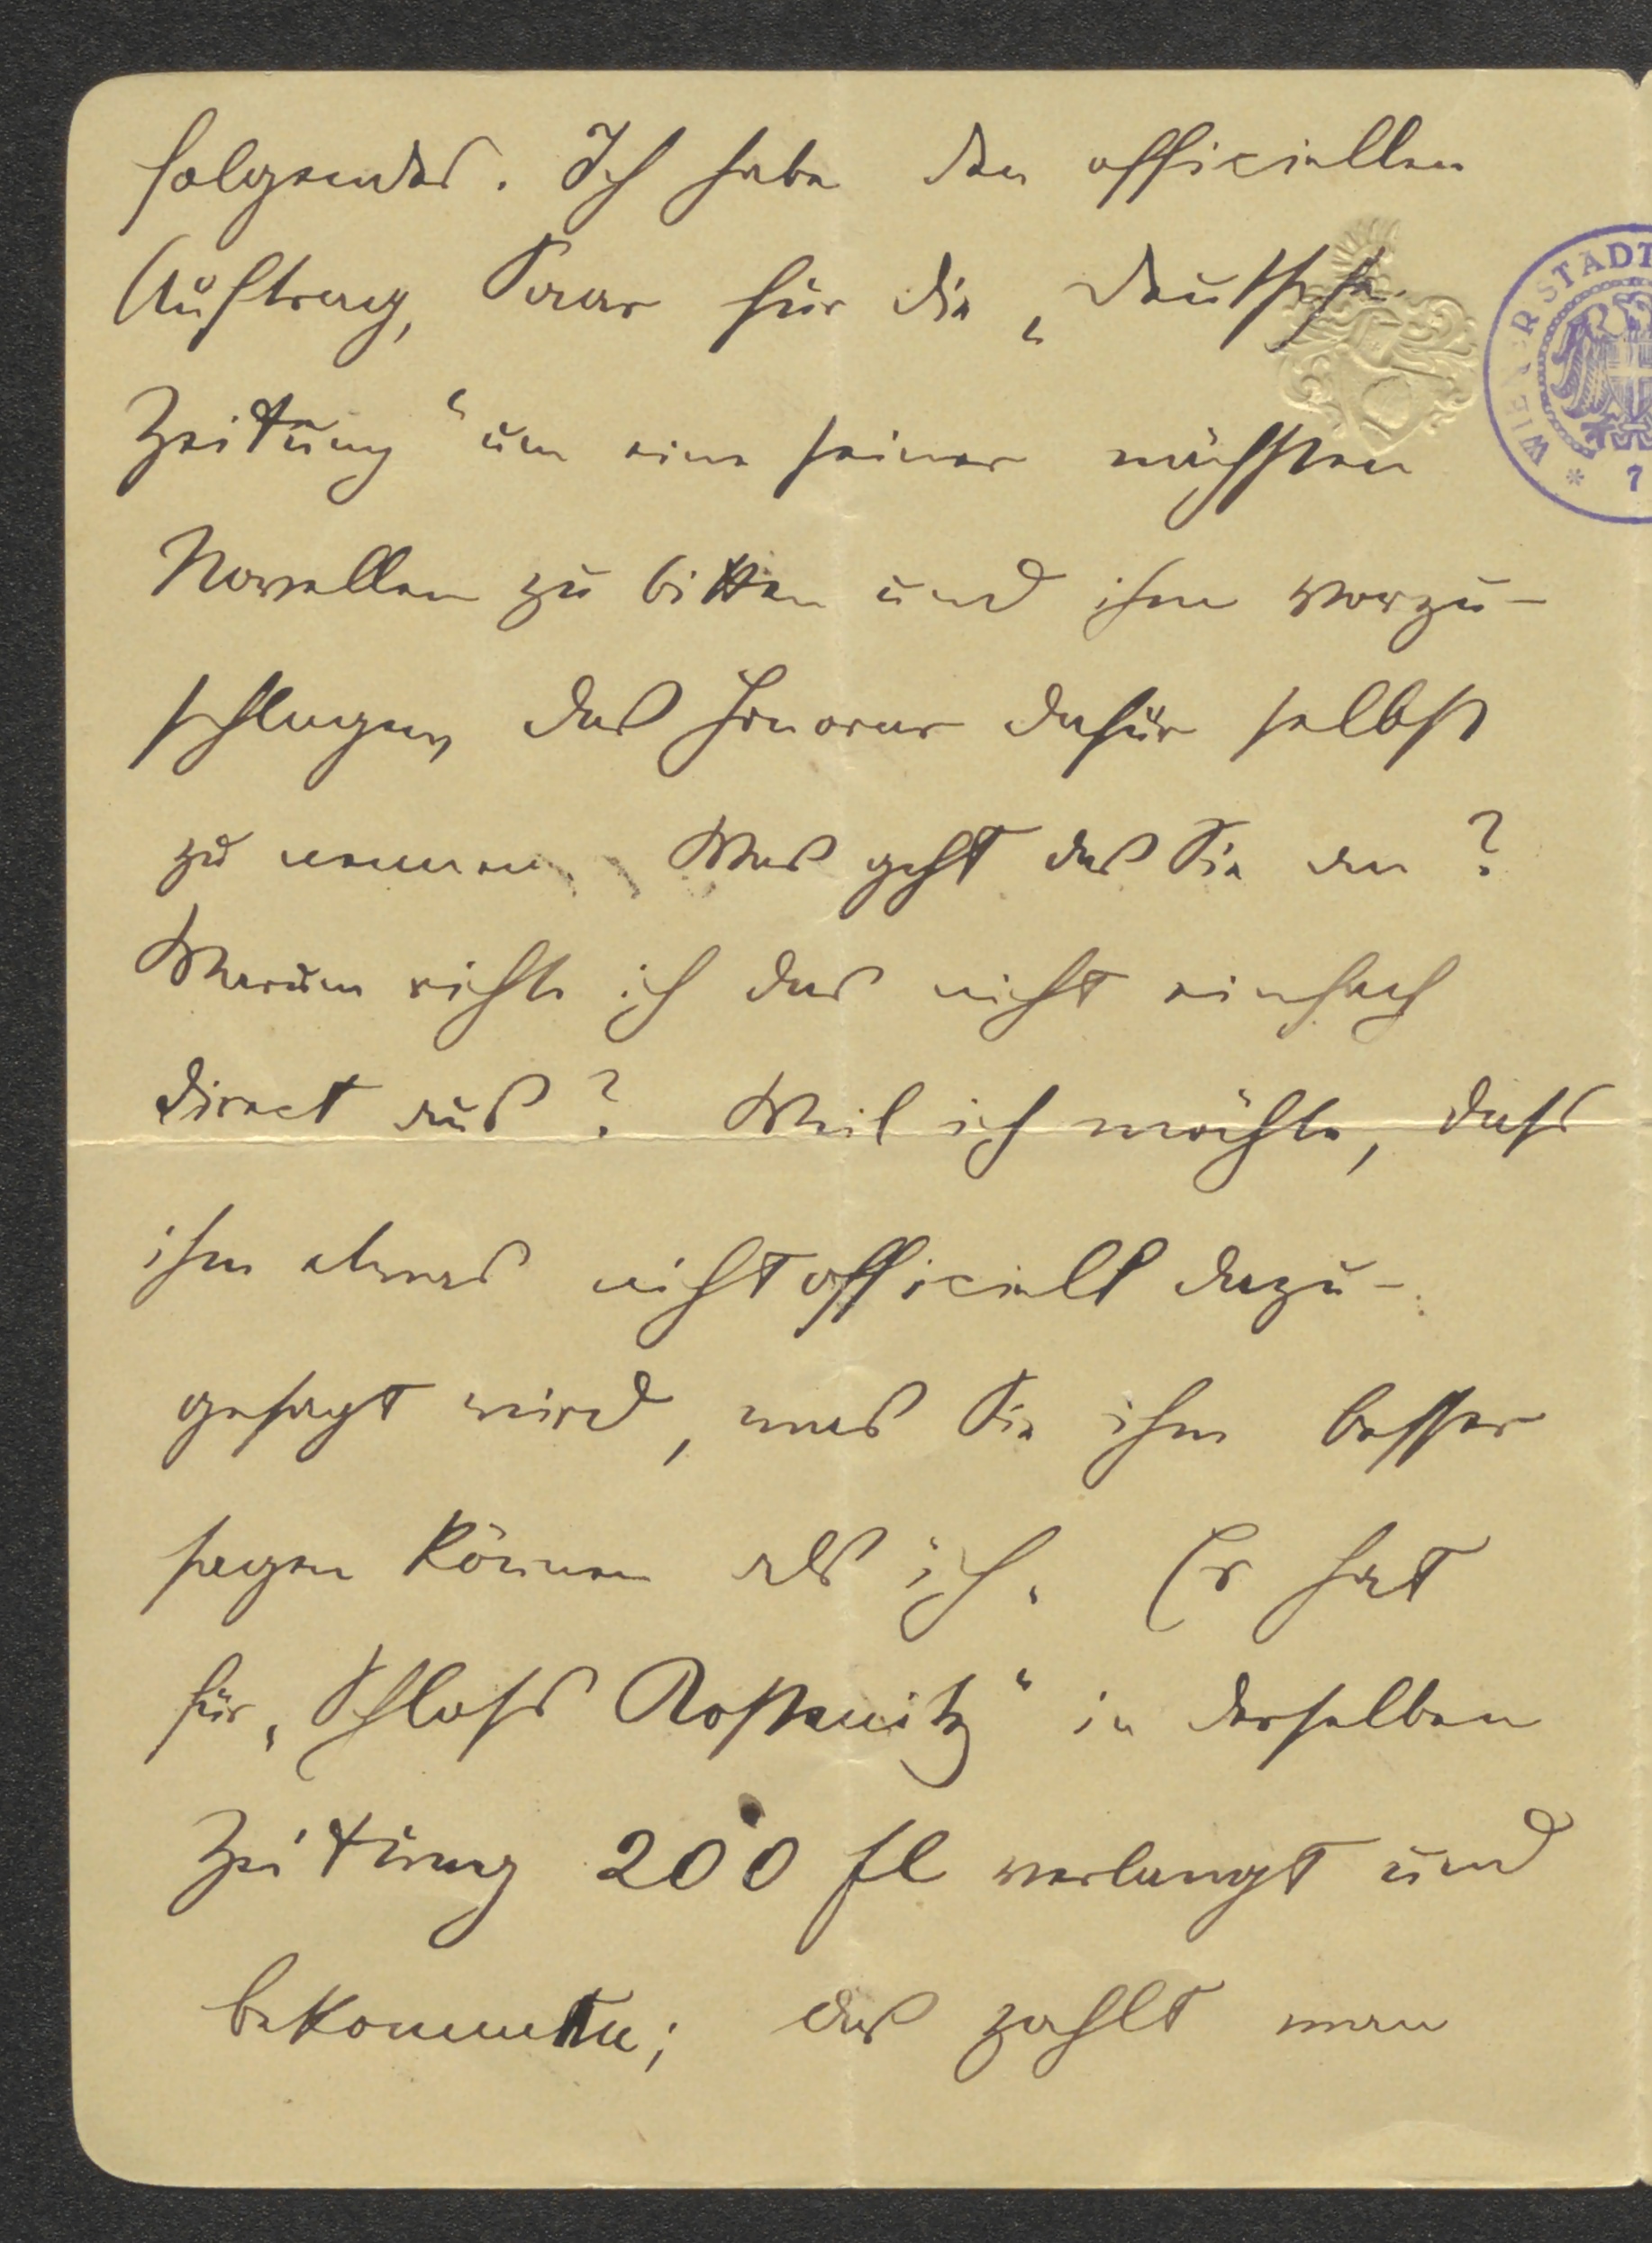 folgendes. Ich habe den officiellen
Auftrag, Saar für die „Deutsche
Zeitung“ um eine seiner nächsten
Novellen zu bitten und ihm vorzu-
schlagen, das Honorar dafür selbst
zu nennen. Was geht das Sie an?
Warum richte ich das nicht einfach
direct aus? Weil ich möchte, dass
ihm etwas nichtofficiell dazu-
gesagt wird, was Sie ihm besser
sagen können als ich. Er hat
für „Schloss Kostenitz“ in derselben
Zeitung 200 fl verlangt und
bekommen; das zahlt man
WIENER STADT
* 7